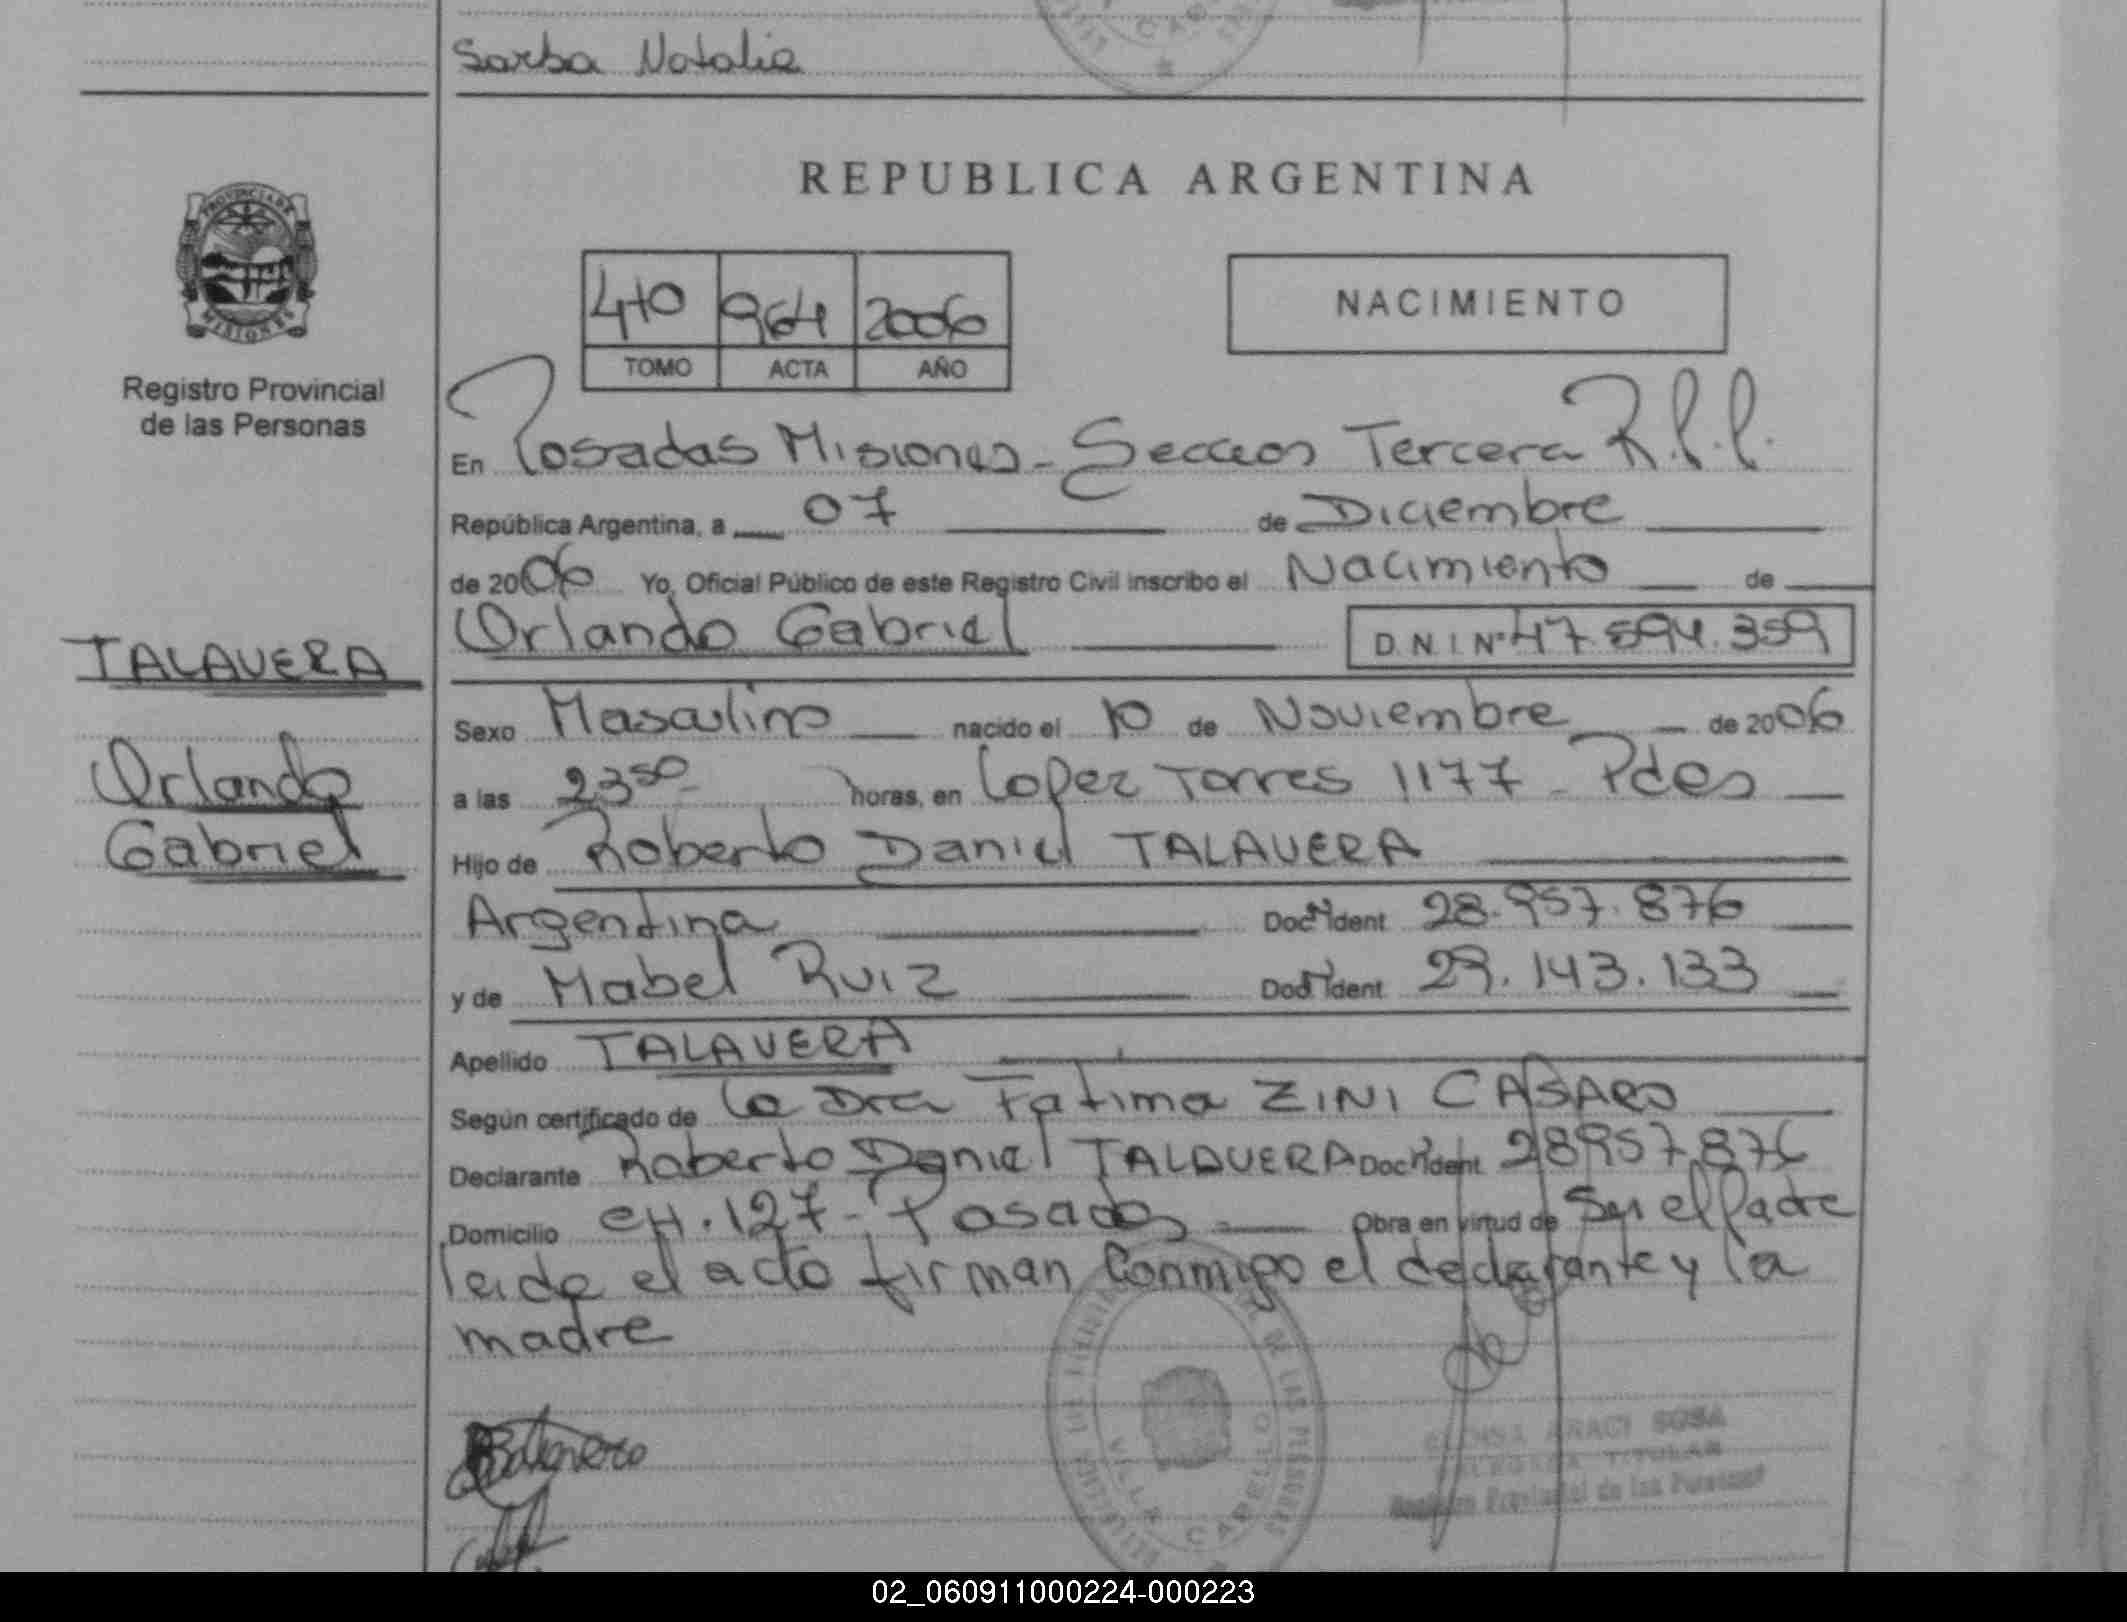 Sarba Natalia
PROVINCIA DE
MISIONES
Registro Provincial
de las Personas
REPUBLICA ARGENTINA
410 964 2006
TOMO ACTA AÑO
NACIMIENTO
En Posadas Misiones - Seccion Tercera R.P.P.
República Argentina, a 07 de Diciembre
de 2006 Yo, Oficial Público de este Registro Civil inscribo el Nacimiento de
Orlando Gabriel D.N.I.Nº 47.594.359
TALAVERA
Orlando
Gabriel
Sexo Masculino nacido el 10 de Noviembre de 2006
a las 23 50 horas, en Lopez Torres 1177 - Pdas
Hijo de Roberto Daniel TALAVERA
Argentina Doc Ident 28.957.876
y de Mabel Ruiz Doc Ident 29.143.133
Apellido TALAVERA
Según certificado de la Dra Fatima ZINI CASARO
Declarante Roberto Daniel TALAVERA Doc Ident 28957876
Domicilio CH. 127 - Posadas Obra en virtud de Ser el Padre
leido el acto firman Conmigo el declarante y la
madre
DE LAS PERSONAS
VILLA CABELLO
ARACI SOSA
TITULAR
Registro Provincial de las Personas
02_060911000224-000223